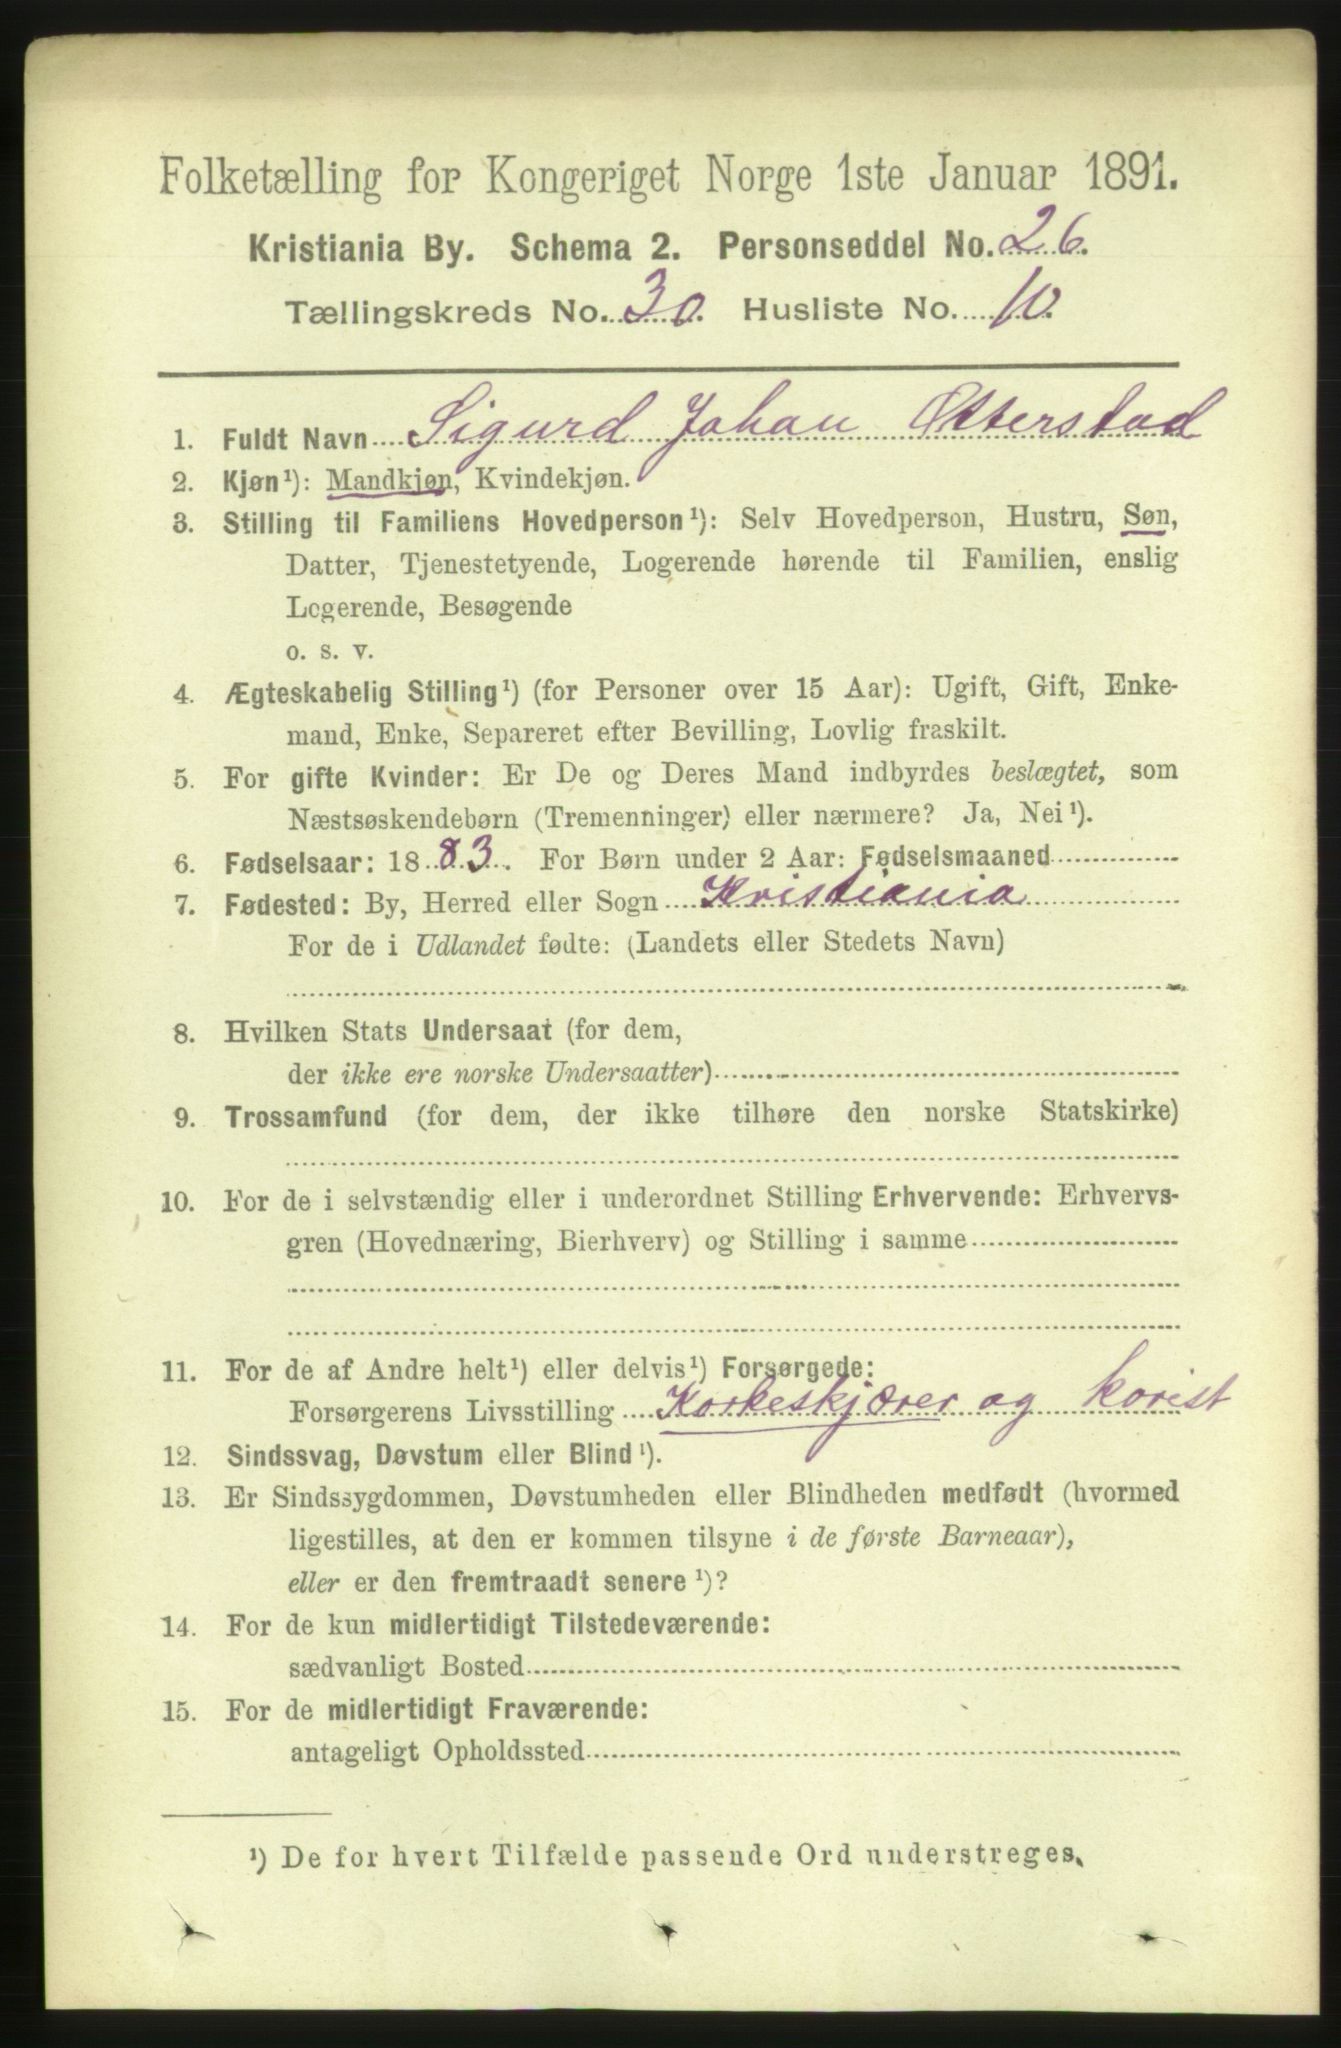 Folketælling for Kongeriget Norge 1ste Januar 1891.
Kristiania By. Schema 2. Personseddel No. 26.
Tællingskreds No. 30. Husliste No. 10.
1. Fuldt Navn Sigurd Johan Otterstad
2. Kjøn¹): Mandkjøn, Kvindekjøn.
3. Stilling til Familiens Hovedperson¹): Selv Hovedperson, Hustru, Søn,
Datter, Tjenestetyende, Logerende hørende til Familien, enslig
Logerende, Besøgende
o. s. v.
4. Ægteskabelig Stilling¹) (for Personer over 15 Aar): Ugift, Gift, Enke-
mand, Enke, Separeret efter Bevilling, Lovlig fraskilt.
5. For gifte Kvinder: Er De og Deres Mand indbyrdes beslægtet, som
Næstsøskendebørn (Tremenninger) eller nærmere? Ja, Nei¹).
6. Fødselsaar: 1883. For Børn under 2 Aar: Fødselsmaaned
7. Fødested: By, Herred eller Sogn Kristiania
For de i Udlandet fødte: (Landets eller Stedets Navn)
8. Hvilken Stats Undersaat (for dem,
der ikke ere norske Undersaatter)
9. Trossamfund (for dem, der ikke tilhøre den norske Statskirke)
10. For de i selvstændig eller i underordnet Stilling Erhvervende: Erhvervs-
gren (Hovednæring, Bierhverv) og Stilling i samme
11. For de af Andre helt¹) eller delvis¹) Forsørgede:
Forsørgerens Livsstilling Korkeskjærer og korist
12. Sindssvag, Døvstum eller Blind¹).
13. Er Sindssygdommen, Døvstumheden eller Blindheden medfødt (hvormed
ligestilles, at den er kommen tilsyne i de første Barneaar),
eller er den fremtraadt senere¹)?
14. For de kun midlertidigt Tilstedeværende:
sædvanligt Bosted
15. For de midlertidigt Fraværende:
antageligt Opholdssted
¹) De for hvert Tilfælde passende Ord understreges.